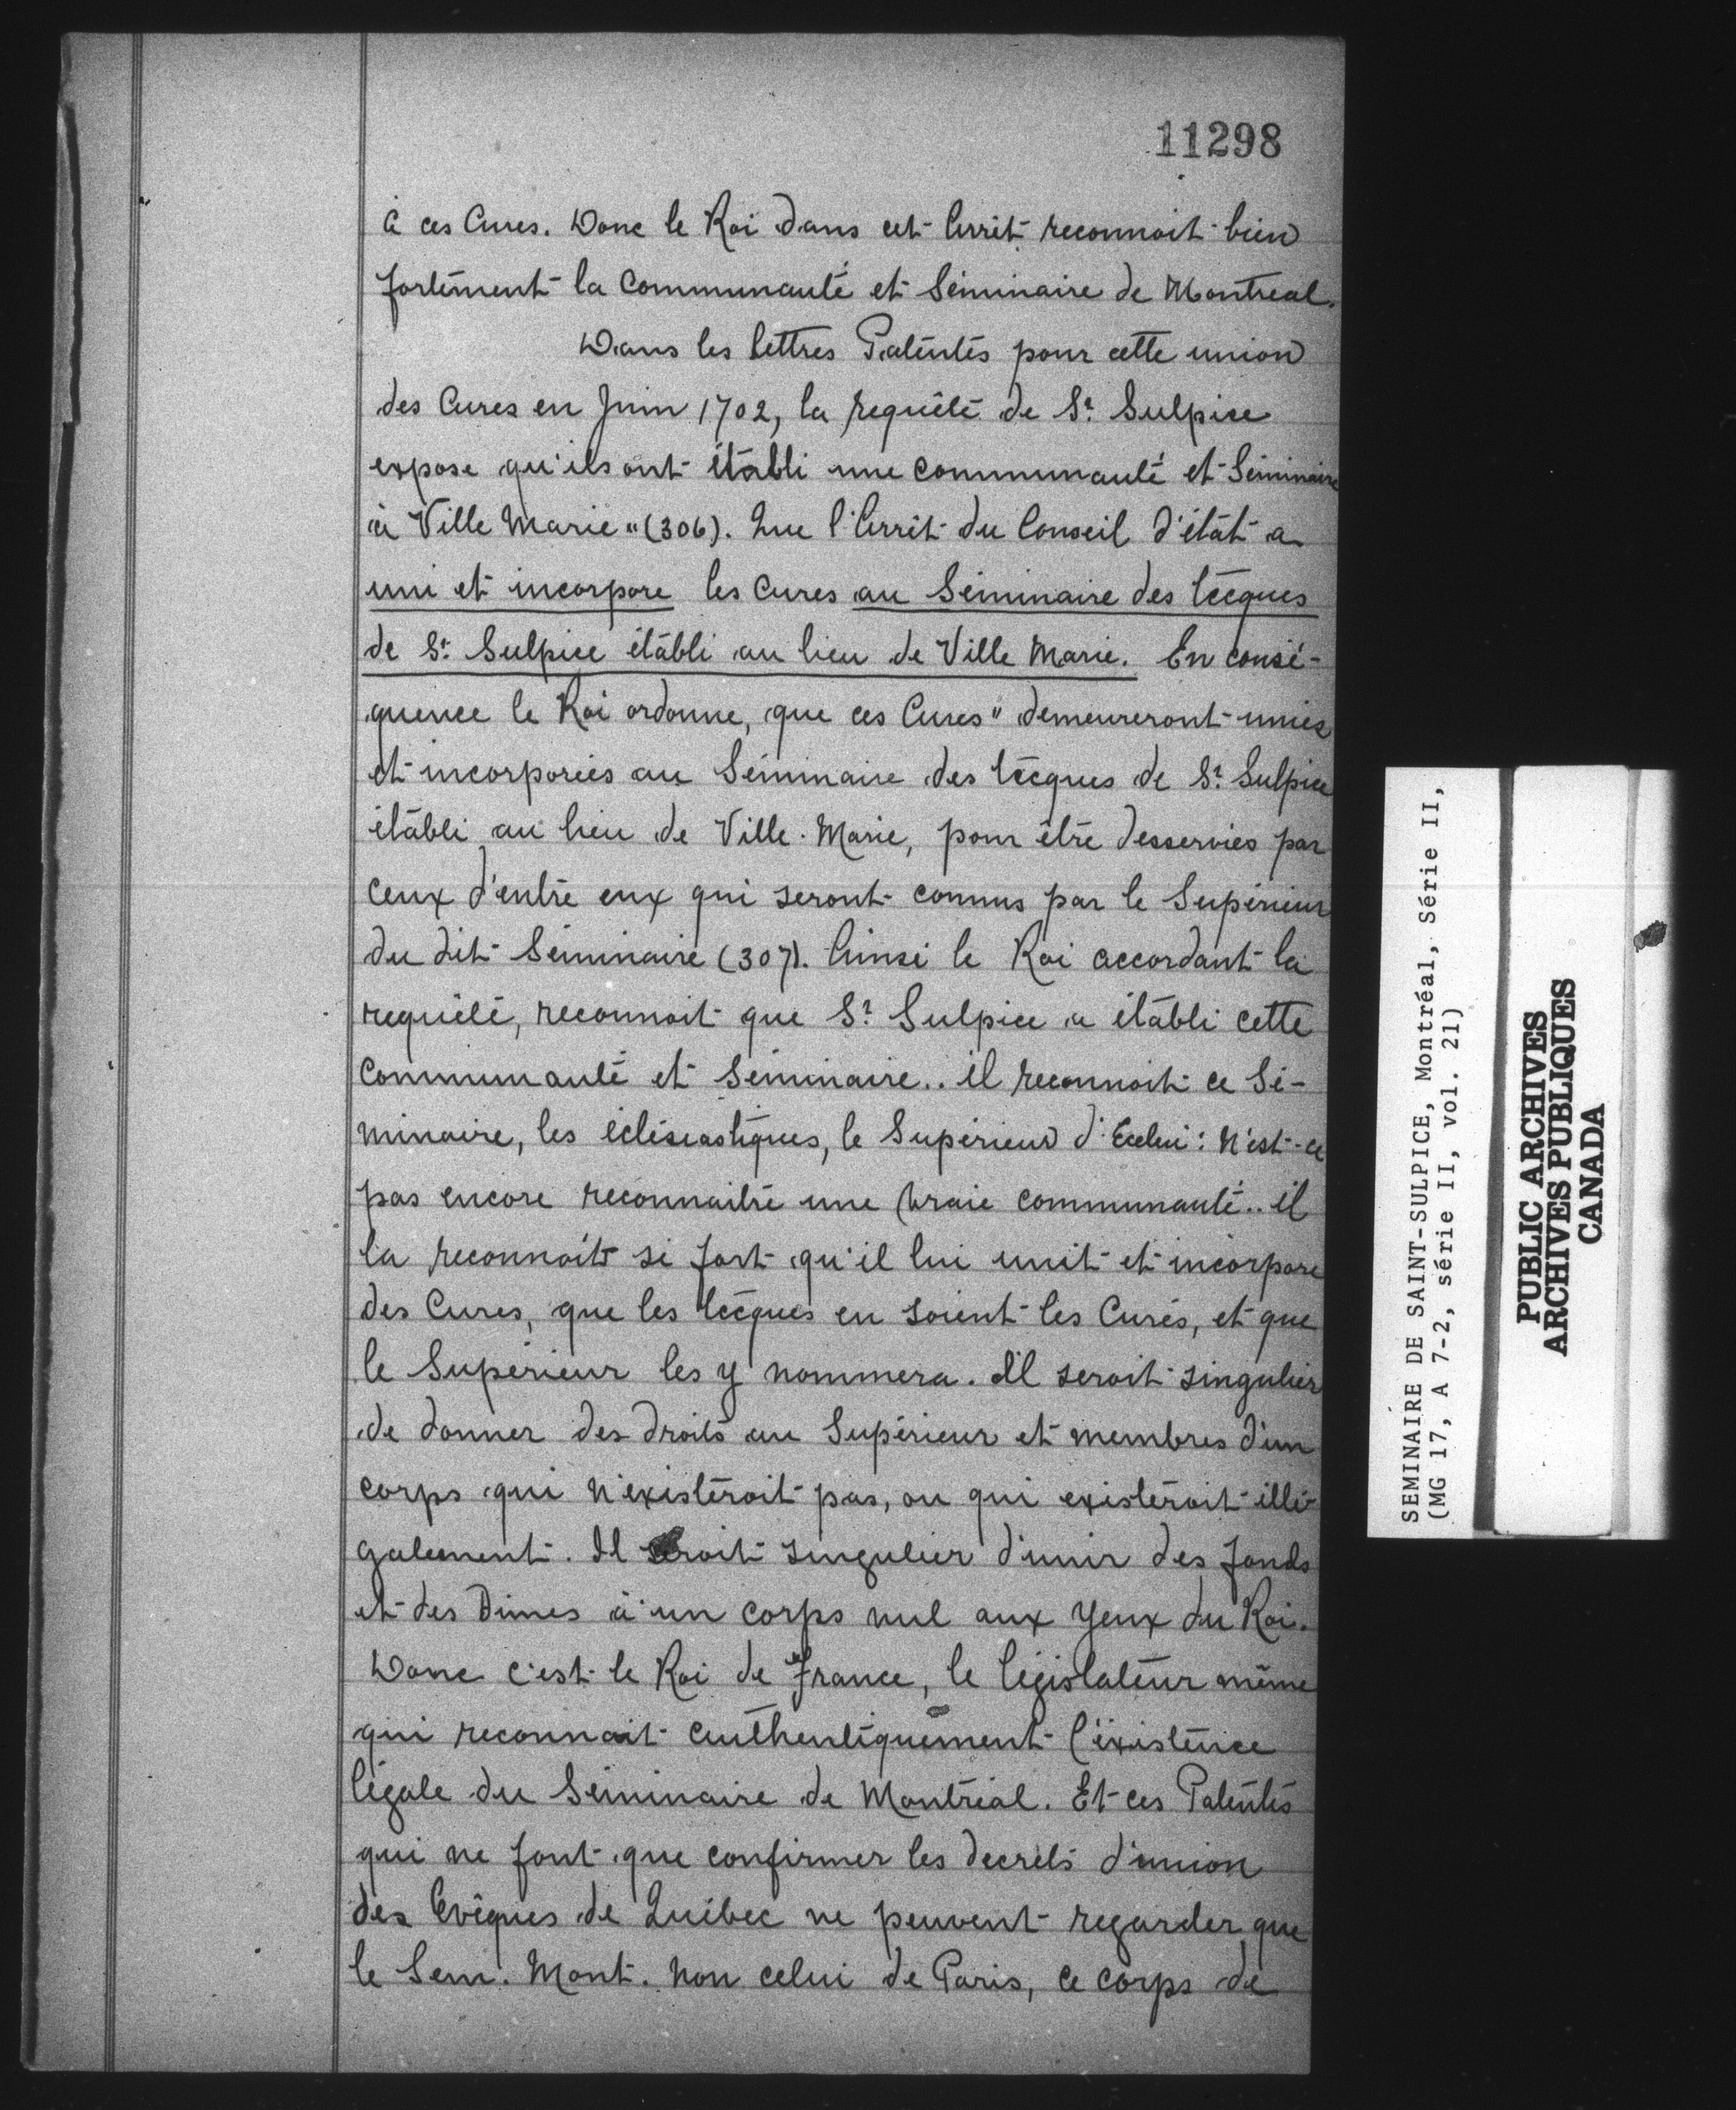 11298
à ces Cures. Donc le Roi dans cet Arrêt reconnoit bien
fortement la Communauté et Séminaire de Montreal.
Dans les lettres Patentés pour cette union
des Cures en Juin 1702, la requête de St Sulpice
expose qu'ils ont établi une communauté et Séminaire
à Ville Marie" (306). Que l'Arrêt du Conseil d'état a
uni et incorpore les Cures au Séminaire des Eccques
de St Sulpice établi au lieu de Ville Marie. En consé-
quence le Roi ordonne, que ces Cures "demeureront unies
et incorporées au Séminaire des Eccques de St Sulpice
établi au lieu de Ville-Marie, pour être desservies par
ceux d'entre eux qui seront connus par le Supérieur
du dit Séminaire (307). Ainsi le Roi accordant la
requête, reconnoit que St Sulpice a établi cette
communauté et séminaire.. il reconnoit ce Sé-
minaire, les éclésiastiques, le Supérieur d'Ecelui: N'est-ce
pas encore reconnaitre une vraie communauté.. il
la reconnoit si fort qu'il lui unit et incorpore
des Cures, que les Eccques en soient les Curés, et que
le Supérieur les y nommera. Il seroit singulier
de donner des droits au Supérieur et membres d'un
corps qui n'existeroit pas, ou qui existeroit illé-
galement. Il seroit singulier d'unir des fonds
et des Dimes à un corps nul aux yeux du Roi.
Donc c'est le Roi de France, le législateur même
qui reconnait authentiquement l'existence
légale du Séminaire de Montréal. Et ces Patentés
qui ne font que confirmer les decrets d'union
des Evêques de Québec ne peuvent regarder que
le Sem. Mont. non celui de Paris, ce corps de
SEMINAIRE DE SAINT-SULPICE, Montréal, Série II,
(MG 17, A 7-2, série II, vol. 21)
PUBLIC ARCHIVES
ARCHIVES PUBLIQUES
CANADA